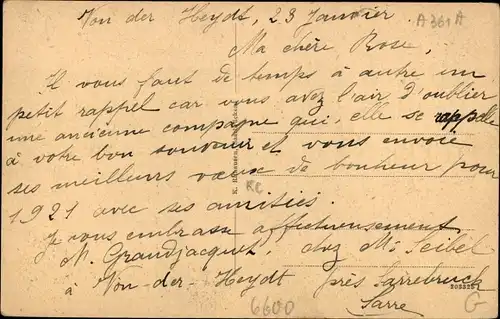 Von der Heydt, 23 Janvier. A361A
Ma chère Rose,
Il vous faut de temps à autre un
petit rappel car vous avez l'air d'oublier
une ancienne compagne qui, elle se rappelle
à votre bon souvenir et vous envoie
ses meilleurs vœux de bonheur pour
1921 avec ses amitiés.
Je vous embrasse affectueusement
N. Grandjacquet, chez Mr Seibel
à Von-der-Heydt près Sarrebruck
Sarre
RC
6600
G